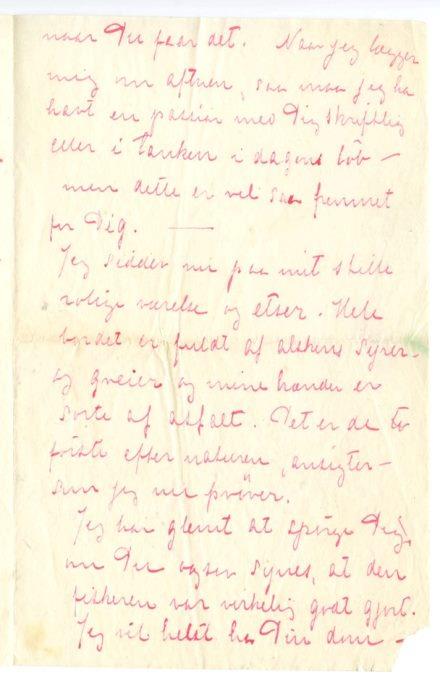 naar Du faar det. Naar jeg lægger
mig om aftnen, saa maa jeg ha
havt en passiar med Dig skriftlig
eller i tanken i dagens löb –
men dette er vel saa fremmet
for Dig. —
Jeg sidder nu paa mit stille
rolige værelse og etser. Hele
bordet er fuldt af alskens syrer-
og greier og mine hænder er
sorte af asfalt. Det er de to
förste efter naturen, ansigter –
som jeg nu pröver.
Jeg har glemt at spörge Dig,
om Du ogsaa synes, at den
fiskeren var virkelig godt gjort.
Jeg vil helst ha Din dom –